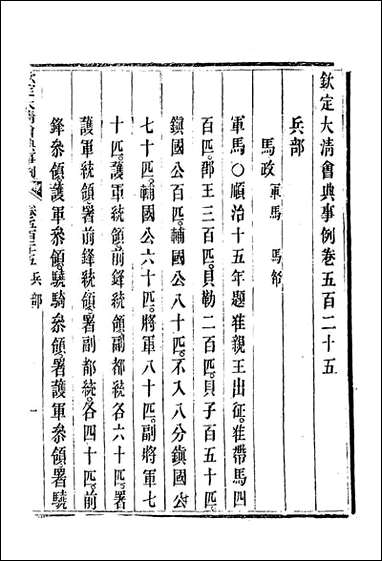 欽定大清會典事例卷五百二十五
兵部
馬政 軍馬 馬幫
軍馬○順治十五年題准親王出征准帶馬四
百匹郡王三百匹貝勒二百匹貝子百五十匹
鎭國公百匹輔國公八十匹不入八分鎭國公
七十匹輔國公六十匹將軍八十匹副將軍七
十匹護軍統領前鋒統領副都統各六十匹署
護軍統領署前鋒統領署副都統各四十匹前
鋒叅領護軍叅領驍騎叅領署護軍叅領署驍
兵部 一